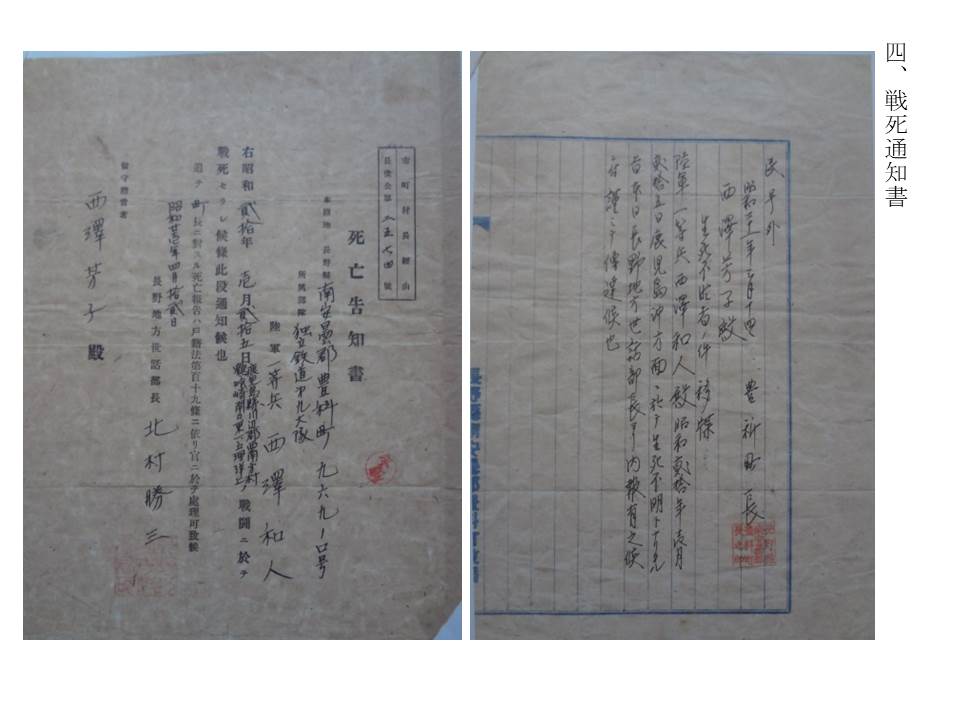 四、戦死通知書
民号外
昭和二十一年三月十四日 豊科町長
西澤芳子殿
生死不明者ノ件移牒
陸軍一等兵西澤和人殿昭和貳拾年壱月
貳拾五日鹿児島沖方面ニ於テ生死不明トナリタル
旨本日長野地方世話部長ヨリ内報有之候
ニ付謹ミテ傳達候也
市町村長經由
死亡告知書
本籍地 長野縣南安曇郡豊科町九六九ノ口号
所屬部隊 独立鉄道第九大隊
陸軍一等兵 西澤和人
右昭和貳拾年壱月貳拾五日
ノ戰鬪ニ於テ
戰死セラレ候條此段通知候也
追テ町長ニ對スル死亡報告ハ戸籍法第百十九條ニ依リ官ニ於テ處理可致候
昭和廿貳年四月拾貳日
長野地方世話部長 北村勝三
留守擔當者
西澤芳子 殿